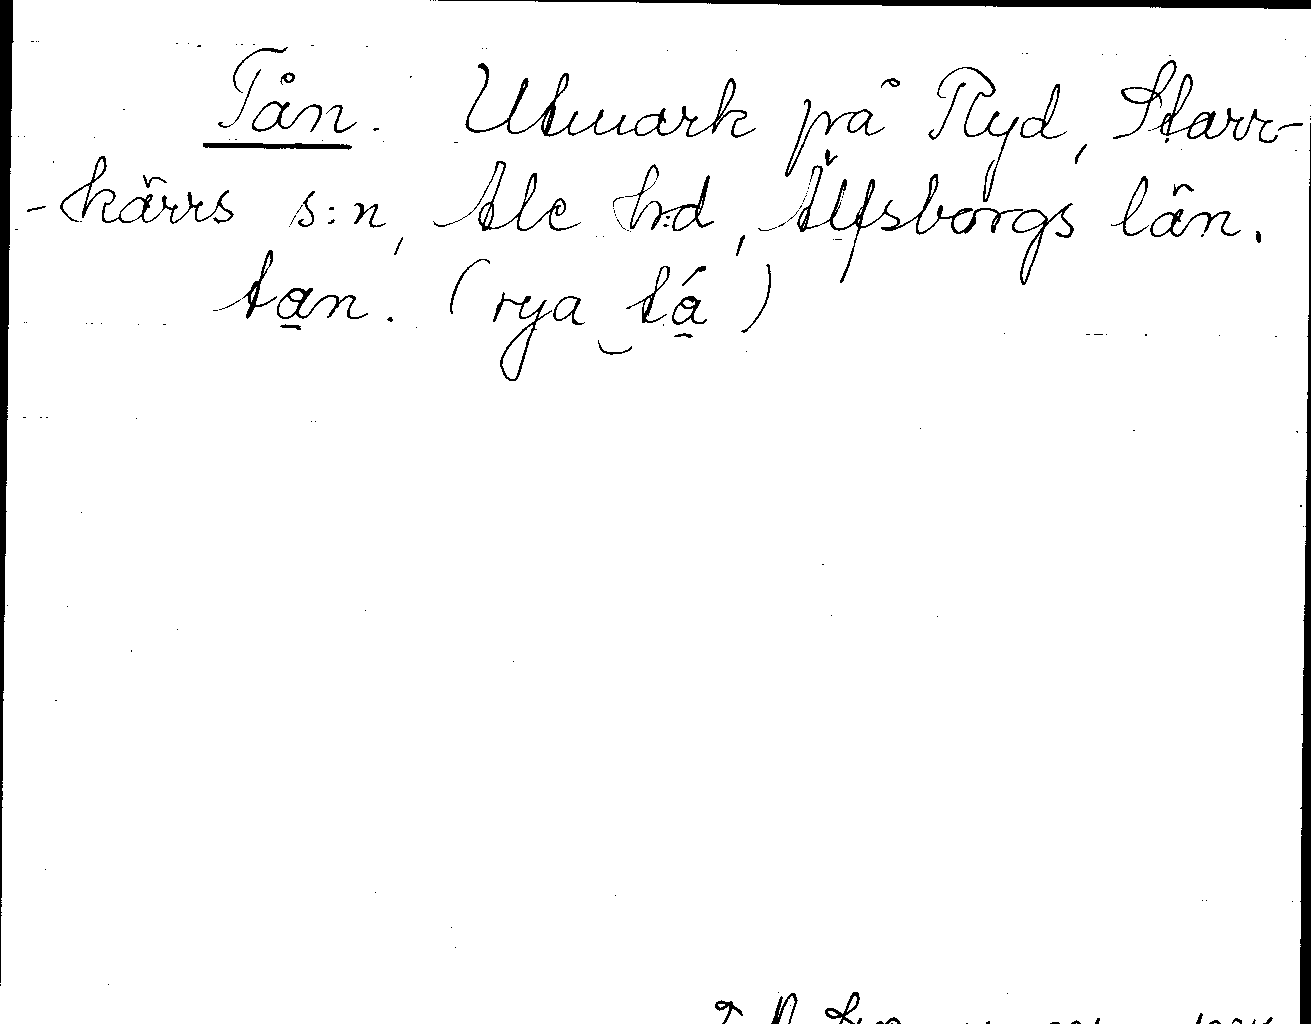 Tån. Utmark på Ryd, Starr-
-kärrs s:n, Ale h:d, Älfsborgs län.
ta̱n. (rya‿tá̱)